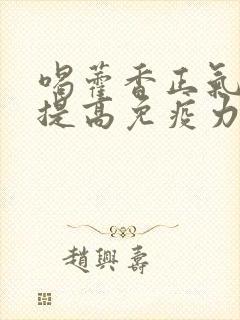 喝藿香正氣
提高免疫力
趙興壽